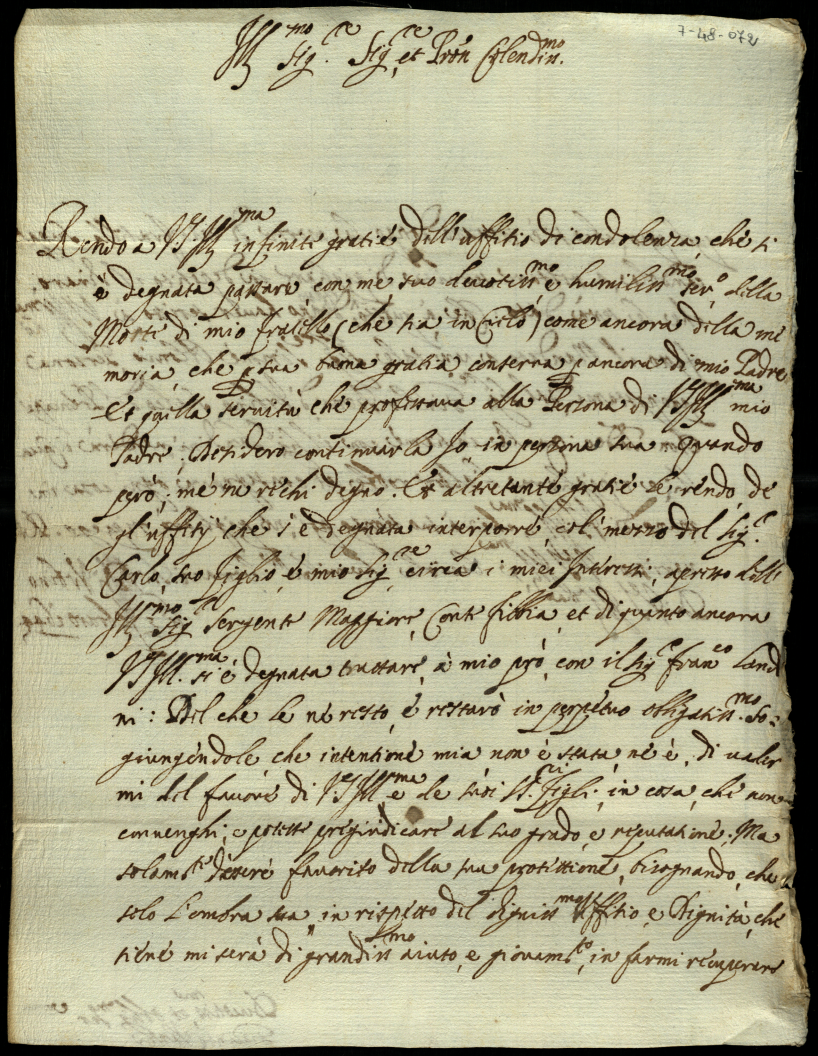 7-48-072
Ill.mo Sig.re Sig.re et Pron Colendiss.mo
Rendo a VS Ill.ma infinite gratie dell'uffitio di condolenza, che si
è degnata passare con me suo devotiss.mo e humiliss.mo ser.o della
Morte di mio fratello (che sia in Cielo) come ancora della me
moria, che p sua buona gratia conserva pancora di mio Padre
Et p quella servitù che professava alla Persona di VS Ill.ma mio
Padre, Desidero continuarla Io in persona sua quando
però me ne rechi degno. Et altretante gratie le rendo de
gl'uffitij che s'è degnata interporre, col mezzo del Sig.r
Carlo suo figlio, e mio Sig.re circa i miei Interessi, apresso dell'
Ill.mo Sig.r Sergente Maggiore, Conte Fibbia, et di quanto ancora
VS Ill.ma si è degnata trattare à mio prò con il Sig.r Fran.co Landi
ni: Del che le ne resto, e restarò in perpetuo obligatiss.mo So=
giungendole che intentione mia non è stata, né è, di valer
mi del favore di VS Ill.ma e de suoi SS.ri figli, in cosa, che non
convenghi, e potesse pregiudicare al suo grado, e riputatione; Ma
solam.te d'essere favorito della sua protettione, bisognando, che
solo l'ombra sua, in rispetto del digniss.mo Uffitio, e Dignità, che
tiene mi serà di grandiss.mo aiuto, e giovam.to, in farmi recuperare